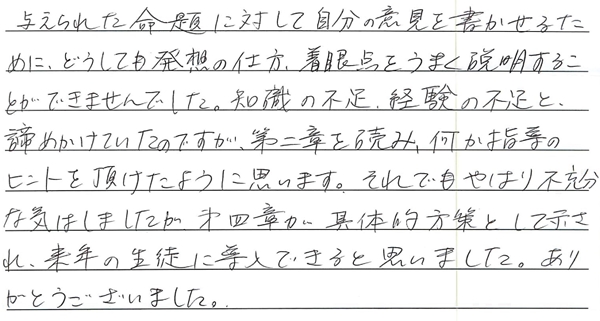 与えられた命題に対して自分の意見を書かせるた
めに、どうしても発想の仕方、着眼点をうまく説明するこ
とができませんでした。知識の不足、経験の不足と、
諦めかけていたのですが、第二章を読み、何か指導の
ヒントを頂けたように思います。それでもやはり不充分
な気はしましたが、第四章が具体的方策として示さ
れ、来年の生徒に導入できると思いました。あり
がとうございました。